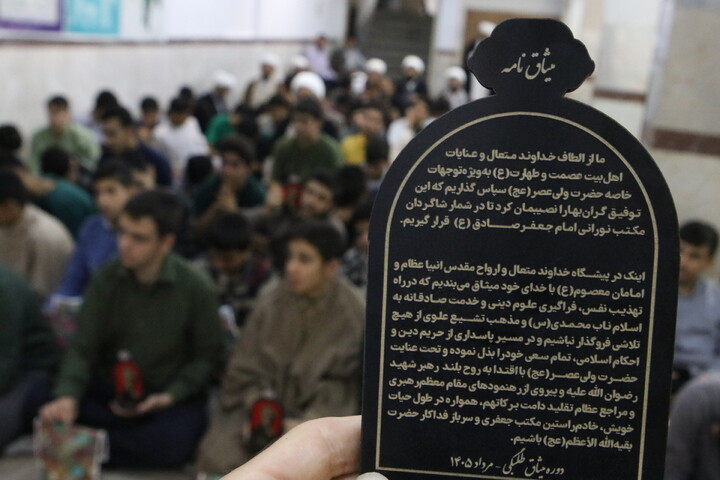 میثاق نامه
ما از الطاف خداوند متعال و عنایات
اهل بیت عصمت و طهارت(ع) به ویژه توجهات
خاصه حضرت ولی عصر (عج) سپاس گذاریم که این
توفیق گران بها را نصیبمان کرد تا در شمار شاگردان
مکتب نورانی امام جعفر صادق (ع) قرار گیریم.
اینک در پیشگاه خداوند متعال و ارواح مقدس انبیا عظام و
امامان معصوم(ع) با خدای خود میثاق می‌بندیم که در راه
تهذیب نفس، فراگیری علوم دینی و خدمت صادقانه به
اسلام ناب محمدی(س) و مذهب تشیع علوی از هیچ
تلاشی فروگذار نباشیم و در مسیر پاسداری از حریم دین و
احکام اسلامی، تمام سعی خود را بذل نموده و تحت عنایت
حضرت ولی عصر (عج) با اقتدا به روح بلند رهبر شهید
رضوان الله علیه و پیروی از رهنمودهای مقام معظم رهبری
و مراجع عظام تقلید دامت برکاتهم، همواره در طول حیات
خویش، خادم راستین مکتب جعفری و سرباز فداکار حضرت
بقیه الله الأعظم(عج) باشیم.
دوره میثاق طلبگی - مرداد ۱۴۰۵